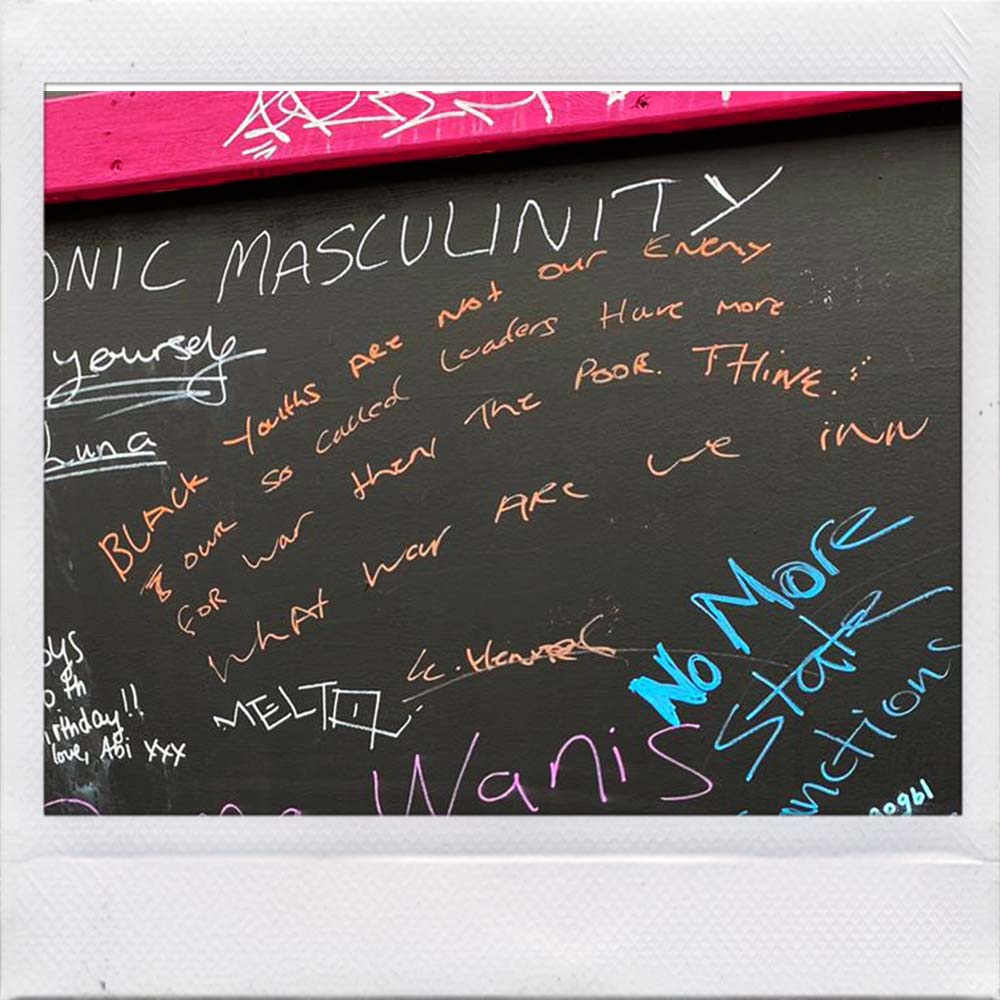 ONIC MASCULINITY
yourself
Luna
BLACK Youths ARE Not our Enemy
& our so called Leaders Have more
FOR war then The POOR. THINK.
WHAt war ARE we inn
No More
State
MELT
irthday!!
love, Abi xxx
Wanis